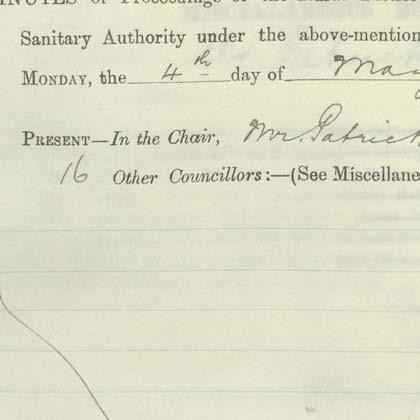 MINUTES of Proceedings of the Rural
Sanitary Authority under the above-mention
MONDAY, the 4th day of
PRESENT—In the Chair, Mr. Patrick
16 Other Councillors:—(See Miscellane